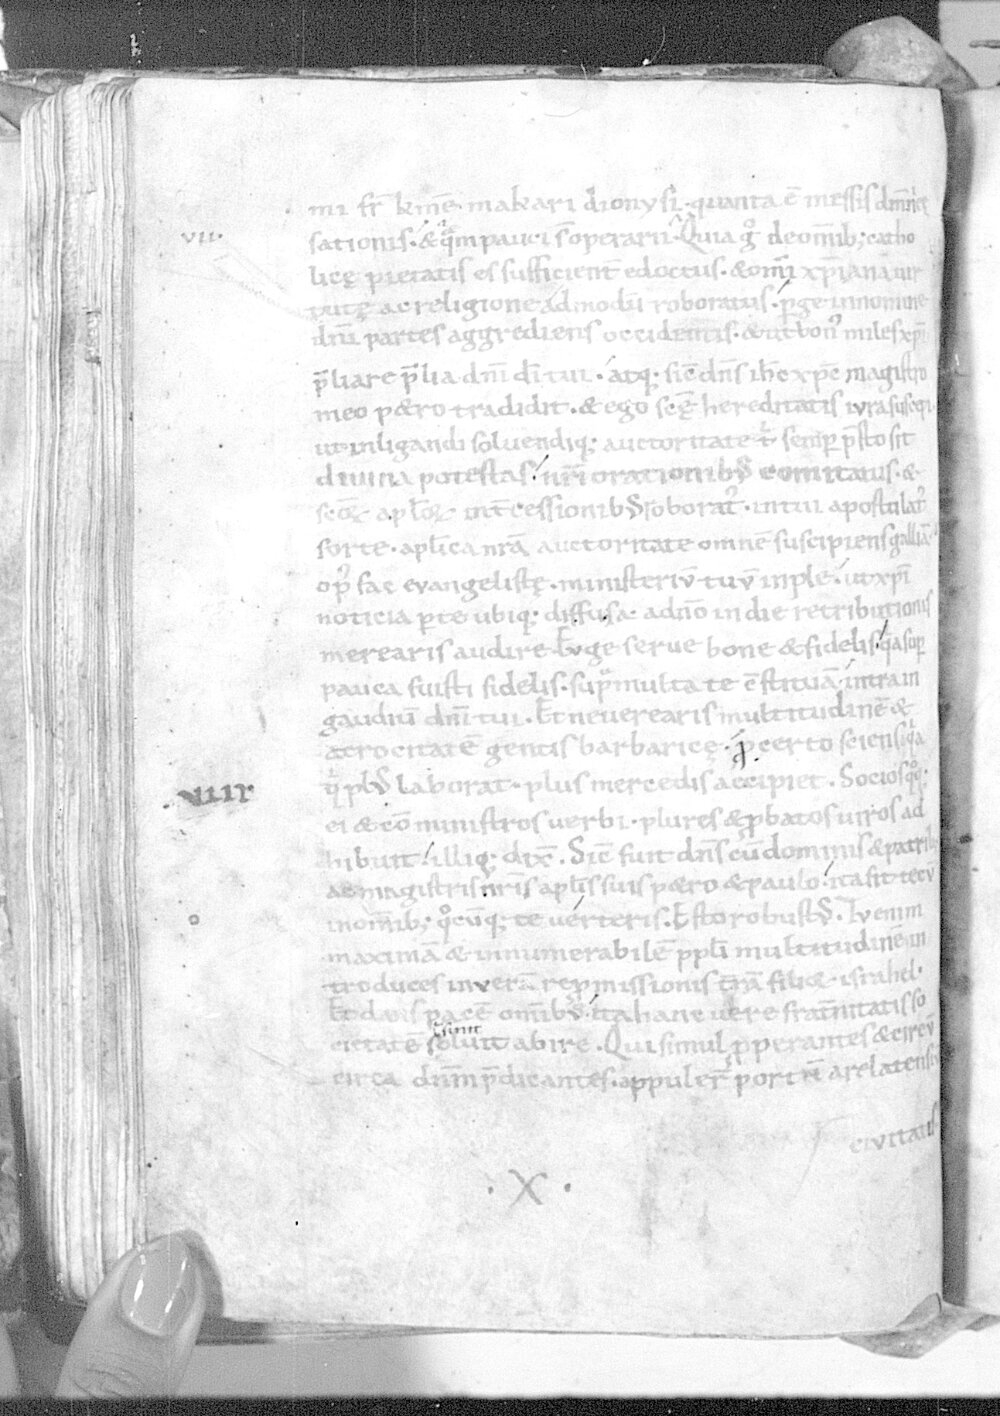 mi fr̄ kmē. makari dionysi. quanta ē messis dm̄i
VII.
sationis. & q̄m pauci s̄ operarii. Quia g° de om̄ib; catho
licę pietatis es sufficient̄ edoctus. & om̄i xp̄iana vir
tutę ac religione admodū roboratus. p̄ge in nomine
dn̄i partes aggrediens occidentis. & ut bon' miles xp̄i
p̄liare p̄lia dn̄i dī tui. atq; sic̄ dn̄s ih̄c xp̄c magistro
meo p&ro tradidit. & ego scę̄ hereditatis iura suscepi
ut in ligandi solvendiq; auctoritate t̄ semp p̄sto sit
divina potestas. nr̄i orationib; comitatus. &
scōꝝ apl̄oꝝ int̄cessionib; roborat'. in tui apostolat'
sorte. apl̄ica nr̄a auctoritate omnē suscipiens galliā.
op' fac evangelistę. ministeriū tuū inple. ut xp̄i
noticia p te ubiq; diffusa. a dn̄o in die retributionis
merearis audire Euge serve bone & fidelis. q̄a sup
pauca fuisti fidelis. sup multa te c̄stituā. intra in
gaudiū dn̄i tui. Et ne verearis multitudinē &
atrocitatē gentis barbaricę. p certo sciens q̄a
q' pl' laborat. plus mercedis accipiet. Socios q°q;
VIIII.
ei & cōministros verbi. plures & p̄batos viros ad
hibuit. illiq; dix̄. Sic̄ fuit dn̄s cū dominis & patrib;
ac magistris nr̄is apl̄is suis p&ro & paulo. ita sit tecū
in om̄ib; q°cūq; te verteris. Esto robust'. Tu enim
maximā & innumerabilē ppl̄i multitudinē in
troduces in verā repmissionis t̄rā filiae israhel.
Et datis pacē om̄ib; italiane vere frat̄nitatis so
sinit
cietatē solvit abire. Qui simul pperantes & circū
circa dn̄m p̄dicantes. appuler̄ portū arelatensis
civitatis
. X .